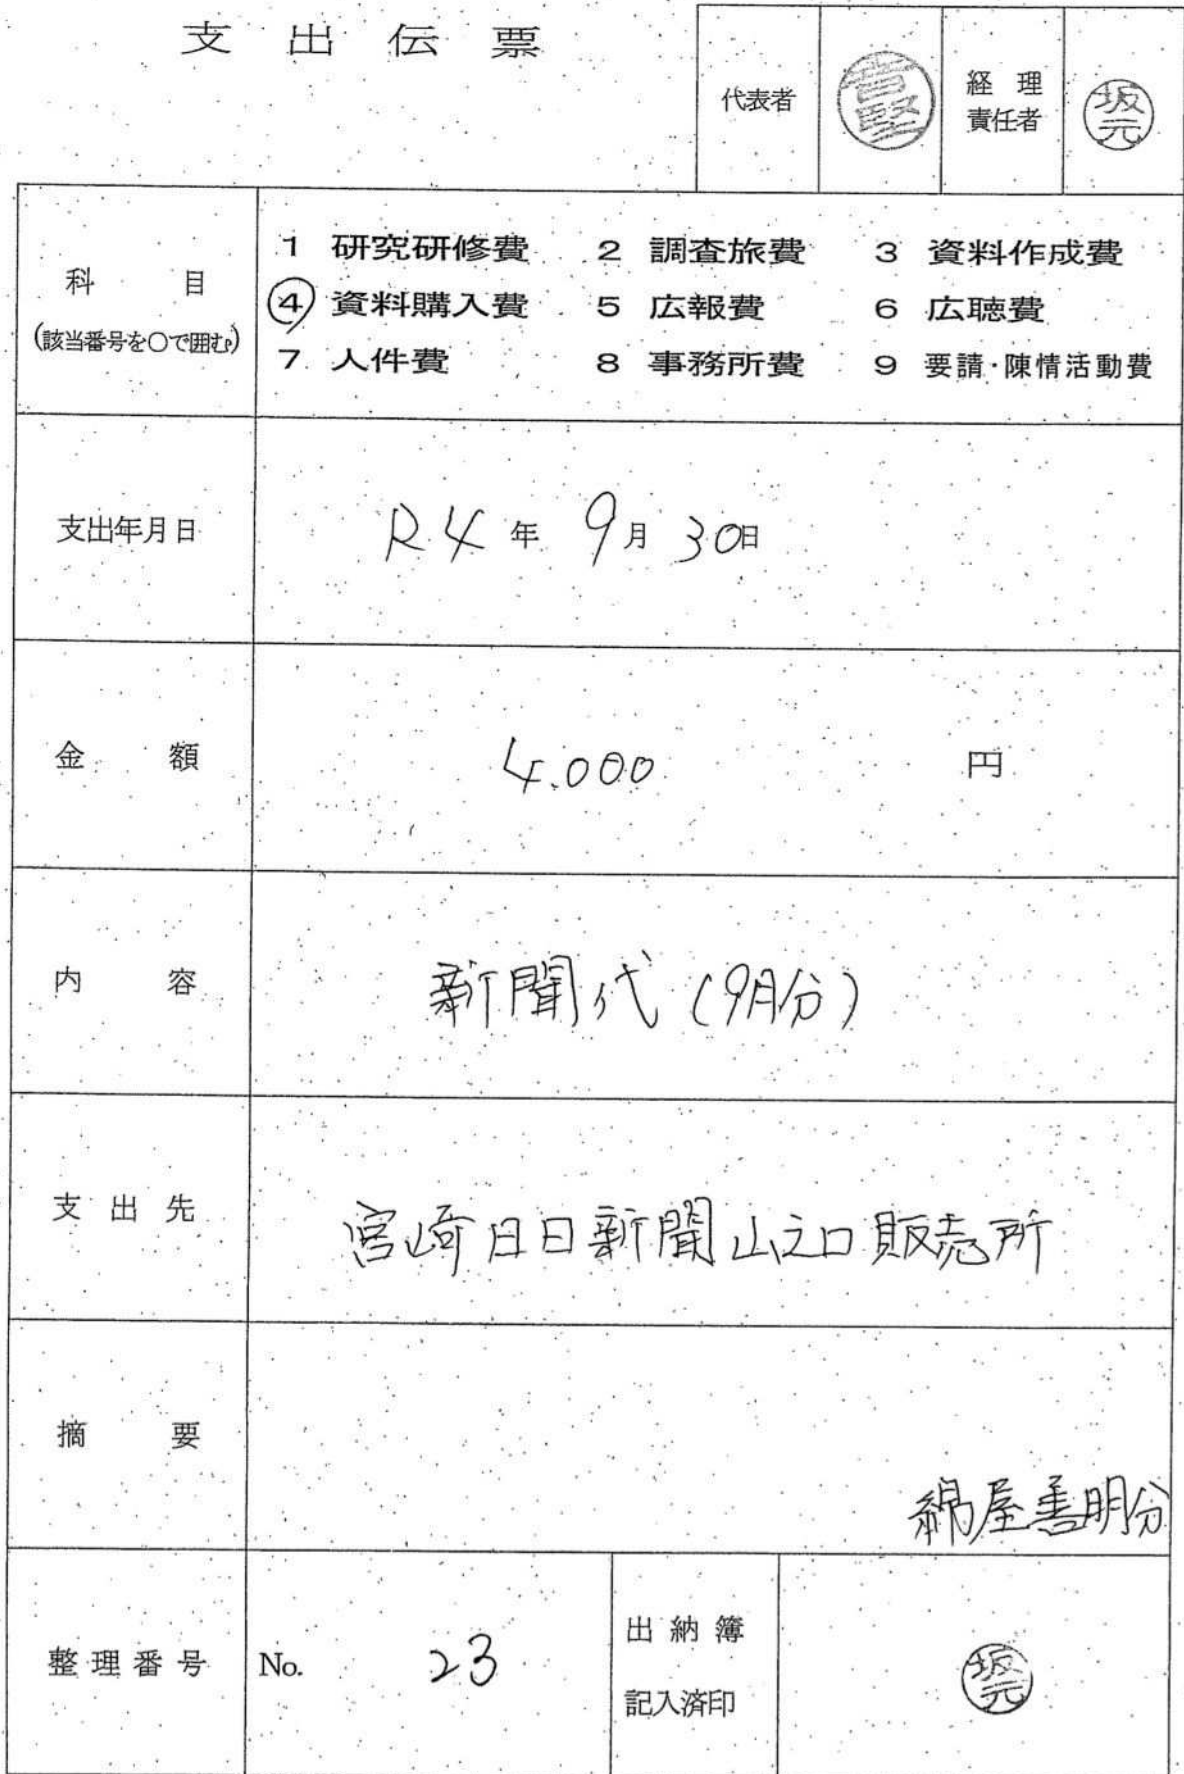 支出伝票
代表者
経理
責任者
坂元
科目
(該当番号を○で囲む)
1 研究研修費 2 調査旅費 3 資料作成費
④ 資料購入費 5 広報費 6 広聴費
7 人件費 8 事務所費 9 要請・陳情活動費
支出年月日 R4年 9月 30日
金額 4.000 円
内容 新聞代(9月分)
支出先 宮崎日日新聞山之口販売所
摘要
綿屋善明分
整理番号 No. 23
出納簿
記入済印
坂元